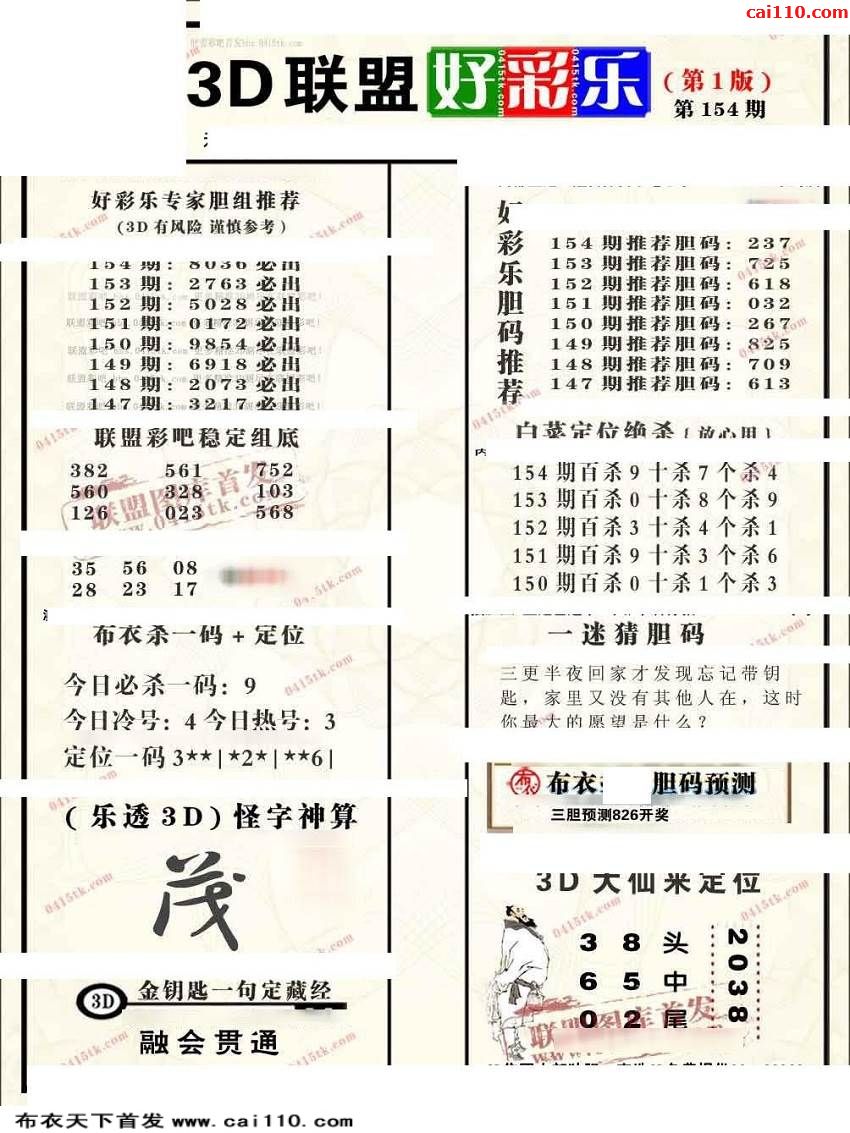 cai110.com
3D联盟好彩乐(第1版)
第154期
好彩乐专家胆组推荐
(3D有风险 谨慎参考)
154期: 8036必出
153期: 2763必出
152期: 5028必出
151期: 0172必出
150期: 9854必出
149期: 6918必出
148期: 2073必出
147期: 3217必出
联盟彩吧稳定组底
382 561 752
560 328 103
126 023 568
联盟图库首发
www.0415tk.com
35 56 08
28 23 17
布衣杀一码+定位
今日必杀一码: 9
今日冷号: 4 今日热号: 3
定位一码3**|*2*|**6|
(乐透3D)怪字神算
茂
3D 金钥匙一句定藏经
融会贯通
好彩乐胆码推荐
154期推荐胆码: 237
153期推荐胆码: 725
152期推荐胆码: 618
151期推荐胆码: 032
150期推荐胆码: 267
149期推荐胆码: 825
148期推荐胆码: 709
147期推荐胆码: 613
白菜定位绝杀{放心用}
154期百杀9十杀7个杀4
153期百杀0十杀8个杀9
152期百杀3十杀4个杀1
151期百杀9十杀3个杀6
150期百杀0十杀1个杀3
一迷猜胆码
三更半夜回家才发现忘记带钥
匙，家里又没有其他人在，这时
你最大的愿望是什么？
布衣 胆码预测
三胆预测826开奖
3D大仙来定位
3 8头
6 5中
0 2尾
2038
联盟图库首发
0415tk.com
布衣天下首发 www.cai110.com